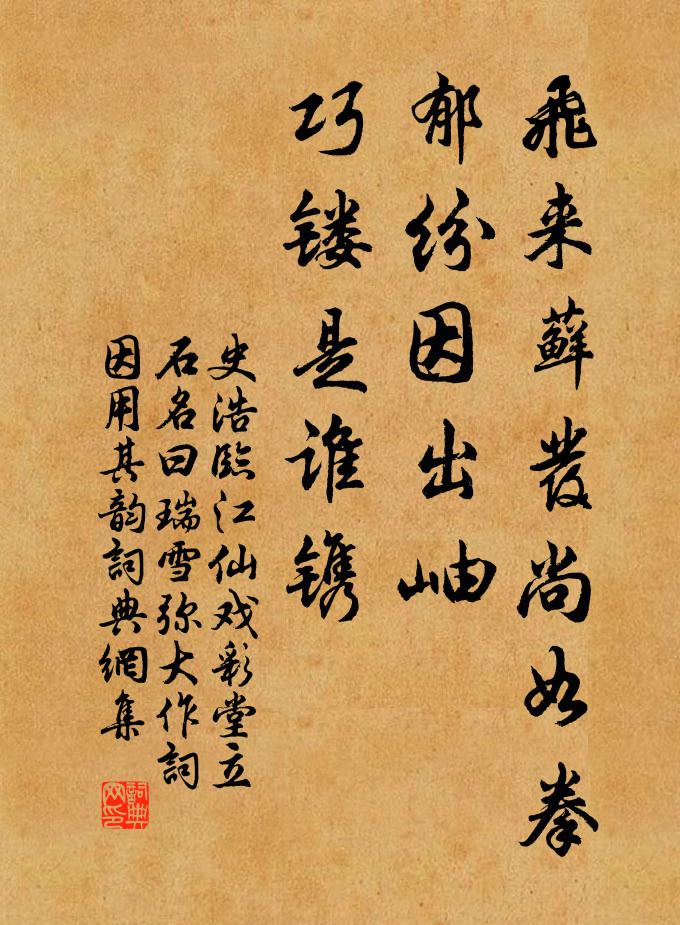 飛来蘚發尚如拳
郁纷因出岫
巧镂是谁镌
史浩臨江仙戏彩堂立
石名曰瑞雪弥大作詞
因用其韵詞典網集
詞典网印